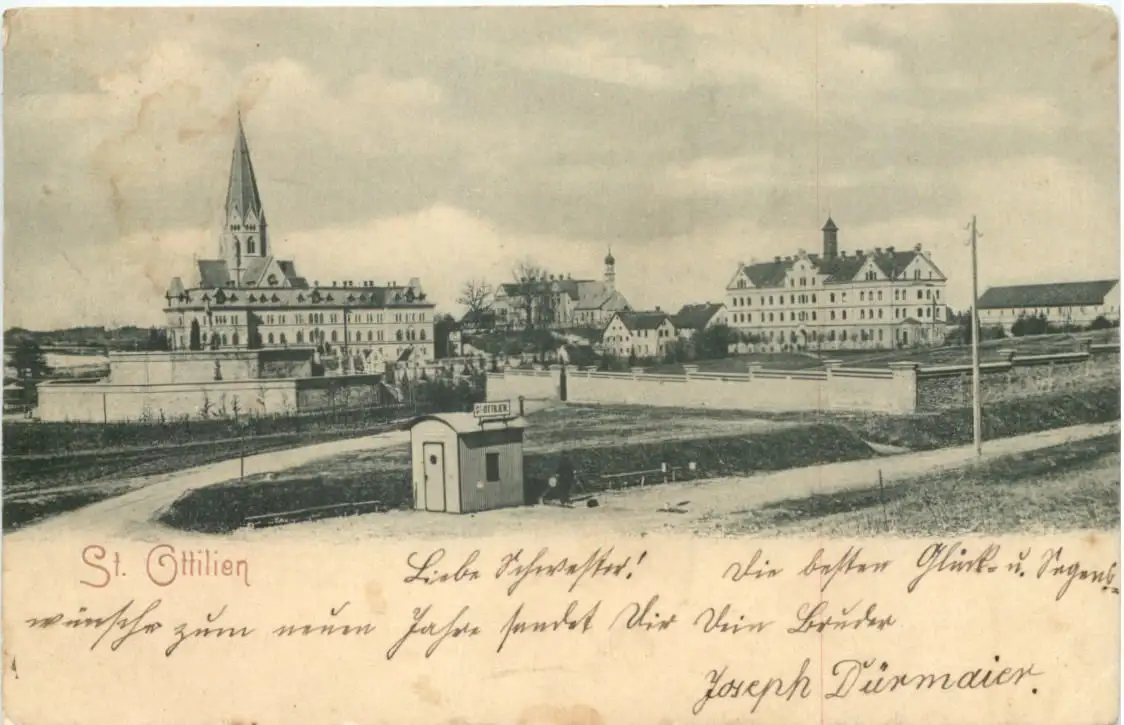 ST. OTTILIEN.
St. Ottilien
Liebe Schwester! Die besten Glück- u. Segens-
wünsche zum neuen Jahre sendet Dir Dein Bruder
Joseph Dürmaier.